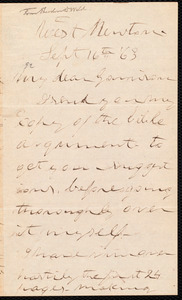 West Newton
Sept 16th '63
My dear Garrison
I send you my
copy of the Bible
argument to
get you suggest
ions, before going
thoroughly over
it myself.
I have run over
hastily the first 24
pages making